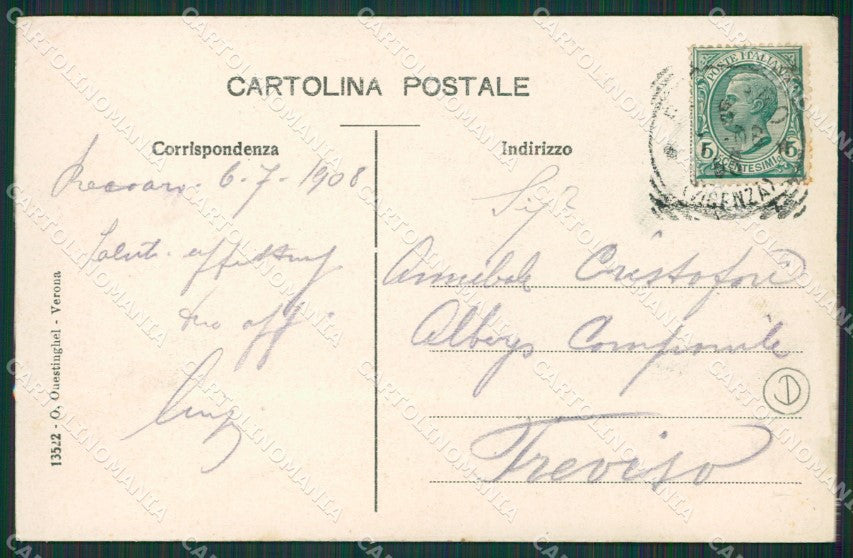 CARTOLINA POSTALE
Corrispondenza
Recoaro - 6-7-1908
Saluti
tuo aff
Luigi
Indirizzo
Sigr
Annibale Cristofori
Albergo
Treviso
POSTE ITALIANE
5 5
CENTESIMI
(VICENZA)
D
13522 - O. Onestinghel - Verona
CARTOLINOMANIA